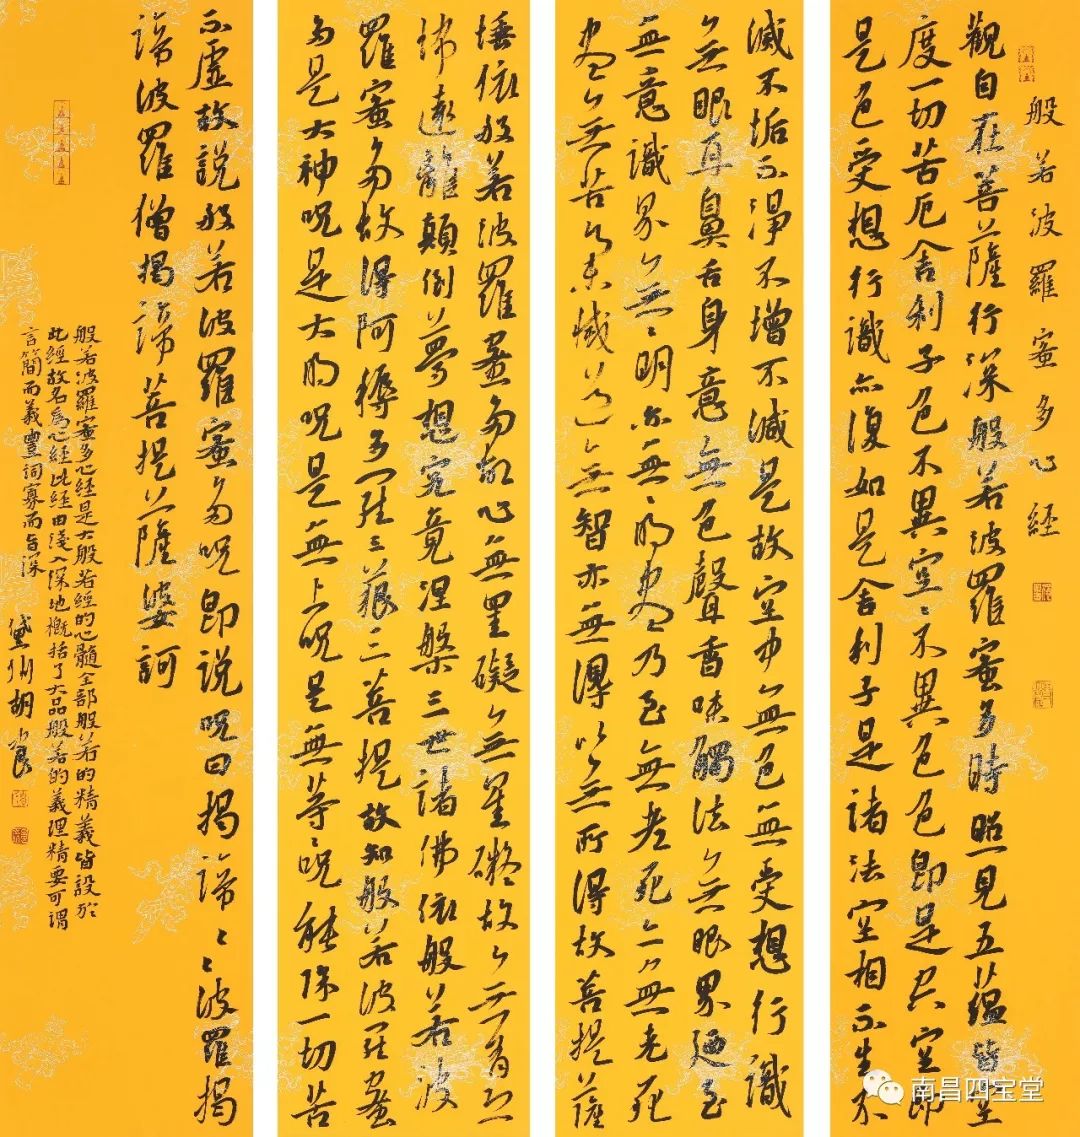 般若波羅蜜多心經
觀自在菩薩行深般若波羅蜜多時照見五蘊皆空
度一切苦厄舍利子色不異空〻不異色色即是空空即
是色受想行識亦復如是舍利子是諸法空相不生不
滅不垢不淨不增不減是故空中無色無受想行識
無眼耳鼻舌身意無色聲香味觸法無眼界廼至
無意識界無〻明亦無〻明盡乃至無老死亦無老死
盡無苦集滅道無智亦無得以無所得故菩提薩
埵依般若波羅蜜多故心無罣礙無罣礙故無有恐
怖遠離顛倒夢想究竟涅槃三世諸佛依般若波
羅蜜多故得阿耨多羅三藐三菩提故知般若波羅蜜
多是大神呪是大明呪是無上呪是無等〻呪能除一切苦
不虛故說般若波羅蜜多呪即說呪曰揭諦〻〻波羅揭
諦波羅僧揭諦菩提薩婆訶
般若波羅蜜多心經是大般若經的心髓全部般若的精義皆設於
此經故名為心經此經由淺入深地概括了大品般若的義理精要可謂
言簡而義豐詞寡而旨深
州胡
南昌四宝堂